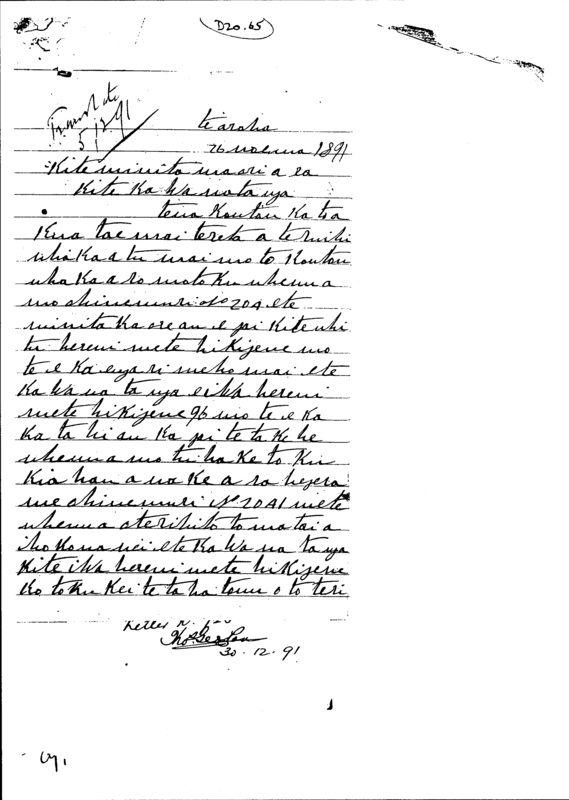 D20.65
Translate
5/12.91
te aroha
26 noema 1891
Kite minita maori a ea
Kite Ka Wa nata nga
tena Koutou Ka toa
Kua tae mai tereta a te ruihi
wha Ka a tu mai mo to Koutou
wha Ka a ro mo to Ku whenua
mo ohinemuri No 20A e te
minita Ka ore au e pi Kite whi
tu hereni me te hi Kipene mo
te e Ka engari me ho mai e te
Ka wa na ta nga e iwa hereni
me te hi Kipene 9/6 mo te e Ka
Ka ta hi au Ka pi te ta Ke he
whenua mo tu ha Ke to Ku
Kia hau a na Ke a ro hepera
me ohinemuri No 20A1 me te
whenua o te rihito to matai a
iho Kona nei e te Ka Wa na ta nga
Kite iwa hereni me te hi Kipene
Ko to Ku Kei te ta ha tonu o to teri
30.12.91